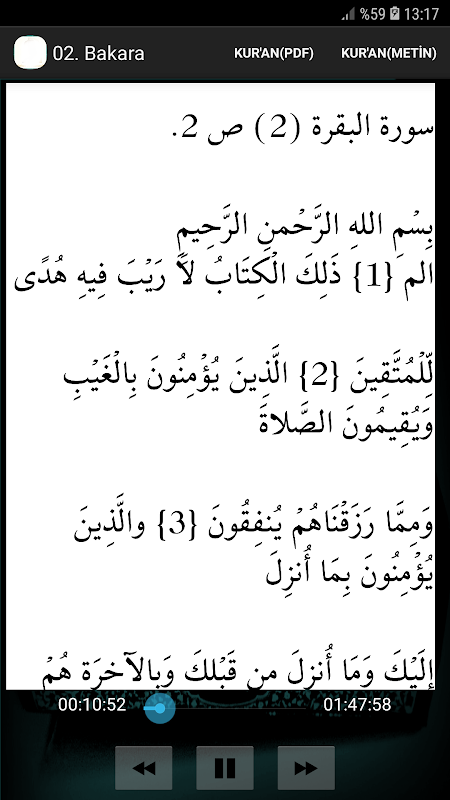 %59 13:17
02. Bakara KUR'AN(PDF) KUR'AN(METİN)
سورة البقرة (2) ص 2.
بِسْمِ اللهِ الرَّحْمنِ الرَّحِيمِ
الم {1} ذَلِكَ الْكِتَابُ لاَ رَيْبَ فِيهِ هُدًى
لِّلْمُتَّقِينَ {2} الَّذِينَ يُؤْمِنُونَ بِالْغَيْبِ
وَيُقِيمُونَ الصَّلاةَ
وَمِمَّا رَزَقْنَاهُمْ يُنفِقُونَ {3} والَّذِينَ
يُؤْمِنُونَ بِمَا أُنزِلَ
إِلَيْكَ وَمَا أُنزِلَ مِن قَبْلِكَ وَبِالآخِرَةِ هُمْ
00:10:52 01:47:58